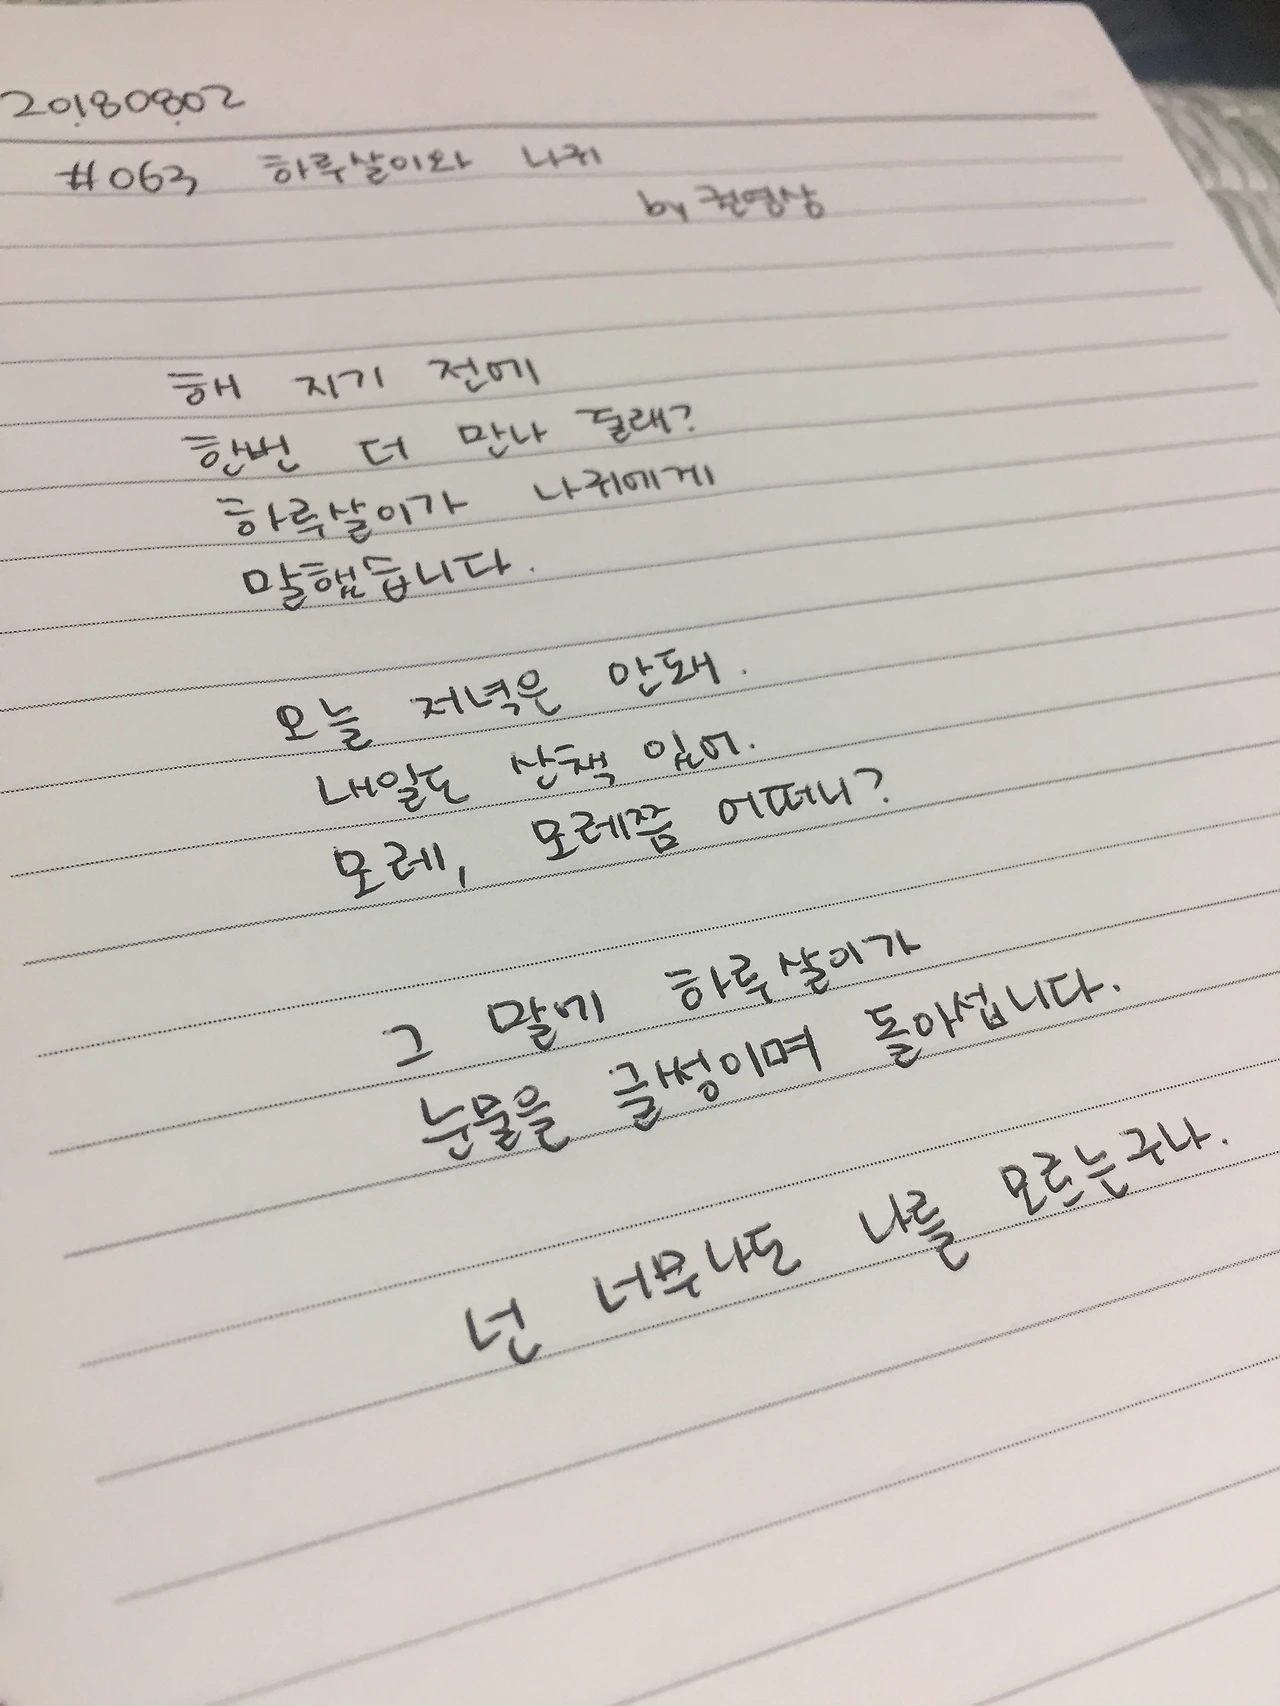 20180802
#063 하루살이와 나귀
by 권영상
해 지기 전에
한번 더 만나 줄래?
하루살이가 나귀에게
말했습니다.
오늘 저녁은 안돼.
내일도 산책 있어.
모레, 모레쯤 어떠니?
그 말에 하루살이가
눈물을 글썽이며 돌아섭니다.
넌 너무나도 나를 모르는구나.